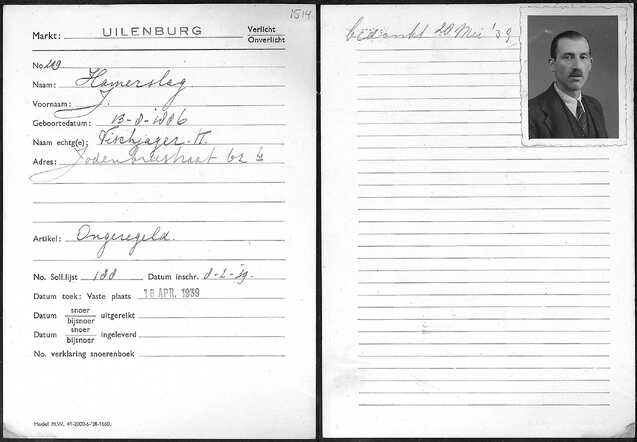 1514
Markt: UILENBURG Verlicht
Onverlicht
No. 219
Naam: Hamerslag
Voornaam: J.
Geboortedatum: 13-8-1886
Naam echtg(e): Vischjager-K.
Adres: Jodenbreestraat 62
Artikel: Ongeregeld.
No. Soll.lijst 188 Datum inschr. 8-2-39.
Datum toek: Vaste plaats 18 APR. 1939
Datum snoer
bijsnoer uitgereikt
Datum snoer
bijsnoer ingeleverd
No. verklaring snoerenboek
Model M.W. 41-2000-6-'38-1660.
bedankt 20 Mei '39